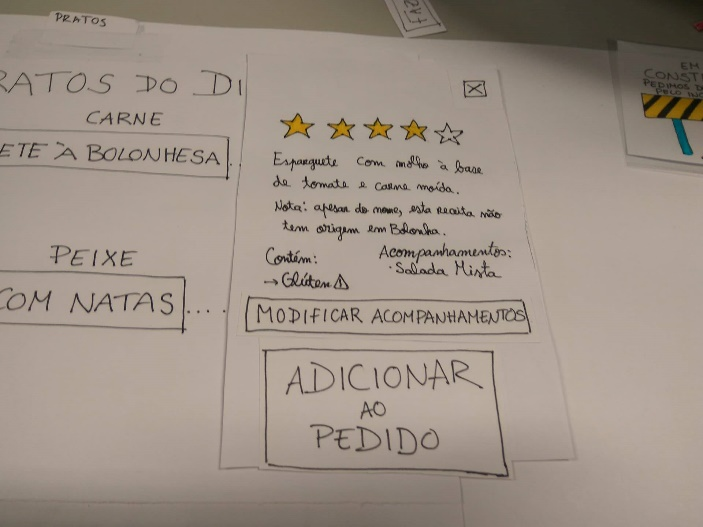 PRATOS
FAZ
RATOS DO DI
CARNE
ETE À BOLONHESA
PEIXE
COM NATAS
Esparguete com molho à base
de tomate e carne moída.
Nota: apesar do nome, esta receita não
tem origem em Bolonha.
Contém:
→ Glúten ⚠
Acompanhamentos:
· Salada Mista
MODIFICAR ACOMPANHAMENTOS
ADICIONAR
AO
PEDIDO
EM
CONST
PEDIMOS D
PELO INC